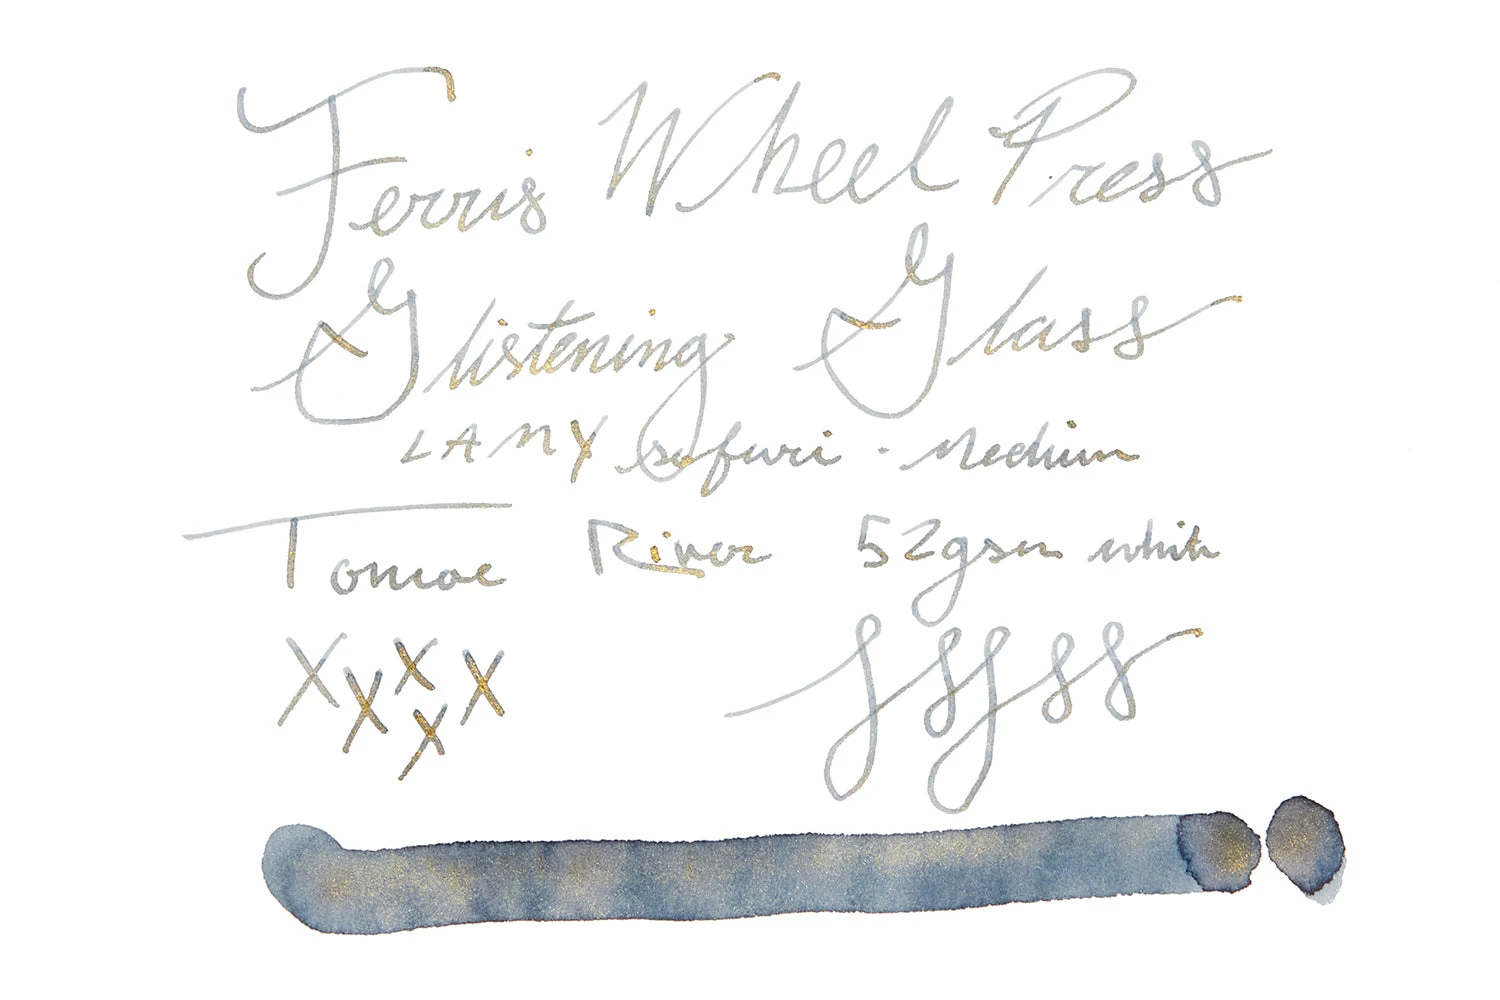 Ferris Wheel Press
Glistening Glass
LAMY safari - Medium
Tomoe River 52gsm white